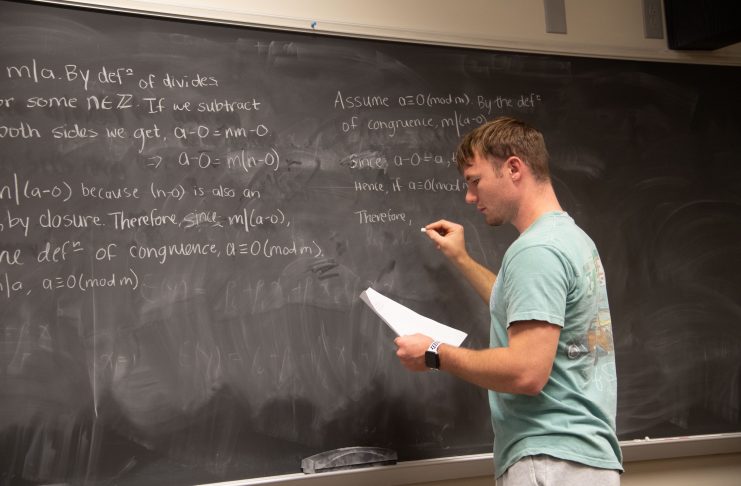 m|a. By defⁿ of divides
or some n∈ℤ. If we subtract
both sides we get, a-0=nm-0.
⇒ a-0=m(n-0)
m|(a-0) because (n-0) is also an
by closure. Therefore, since m|(a-0),
he defⁿ of congruence, a≡0(mod m)
|a, a≡0(mod m)
Assume a≡0(mod m). By the defⁿ
of congruence, m|(a-0)
Since, a-0=a,
Hence, if a≡0(mod m)
Therefore,